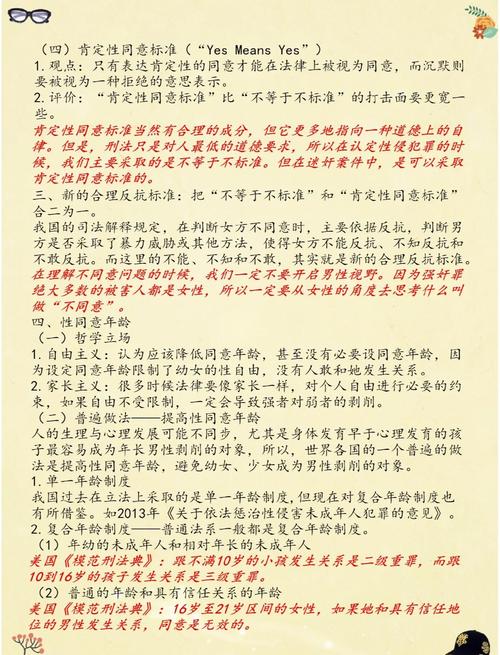 （四）肯定性同意标准（“Yes Means Yes”）
1.观点：只有表达肯定性的同意才能在法律上被视为同意，而沉默则
要被视为一种拒绝的意思表示。
2.评价：“肯定性同意标准”比“不等于不标准”的打击面要更宽一
些。
肯定性同意标准当然有合理的成分，但它更多地指向一种道德上的自
律。但是，刑法只是对人最低的道德要求，所以在认定性侵犯罪的时
候，我们主要采取的是不等于不标准。但在迷奸案件中，是可以采取
肯定性同意标准的。
三、新的合理反抗标准：把“不等于不标准”和“肯定性同意标准”
合二为一。
我国的司法解释规定，在判断女方不同意时，主要依据反抗，判断男
方是否采取了暴力威胁或其他方法，使得女方不能反抗、不知反抗和
不敢反抗。而这里的不能、不知和不敢，其实就是新的合理反抗标准。
在理解不同意问题的时候，我们一定不要开启男性视野。因为强奸罪
绝大多数的被害人都是女性，所以一定要从女性的角度去思考什么叫
做“不同意”。
四、性同意年龄
（一）哲学立场
1.自由主义：认为应该降低同意年龄，甚至没有必要设同意年龄，因
为设定同意年龄限制了幼女的性自由，没有人敢和她发生关系。
2.家长主义：很多时候法律要像家长一样，对个人自由进行必要的约
束，如果自由不受限制，一定会导致强者对弱者的剥削。
（二）普遍做法——提高性同意年龄
人的生理与心理发展可能不同步，尤其是身体发育早于心理发育的孩
子最容易成为年长男性剥削的对象，所以，世界各国的一个普遍的做
法是提高性同意年龄，避免幼女、少女成为男性剥削的对象。
1.单一年龄制度
我国过去在立法上采取的是单一年龄制度,但现在对复合年龄制度也
有所借鉴。如2013年《关于依法惩治性侵害未成年人犯罪的意见》。
2.复合年龄制度——普通法系一般都是复合年龄制度。
（1）年幼的未成年人和相对年长的未成年人
美国《模范刑法典》：跟不满10岁的小孩发生关系是二级重罪，而跟
10到16岁的孩子发生关系是三级重罪。
（2）普通的年龄和具有信任关系的年龄
美国《模范刑法典》：16岁至21岁区间的女性，如果她和具有信任地
位的男性发生关系，同意是无效的。